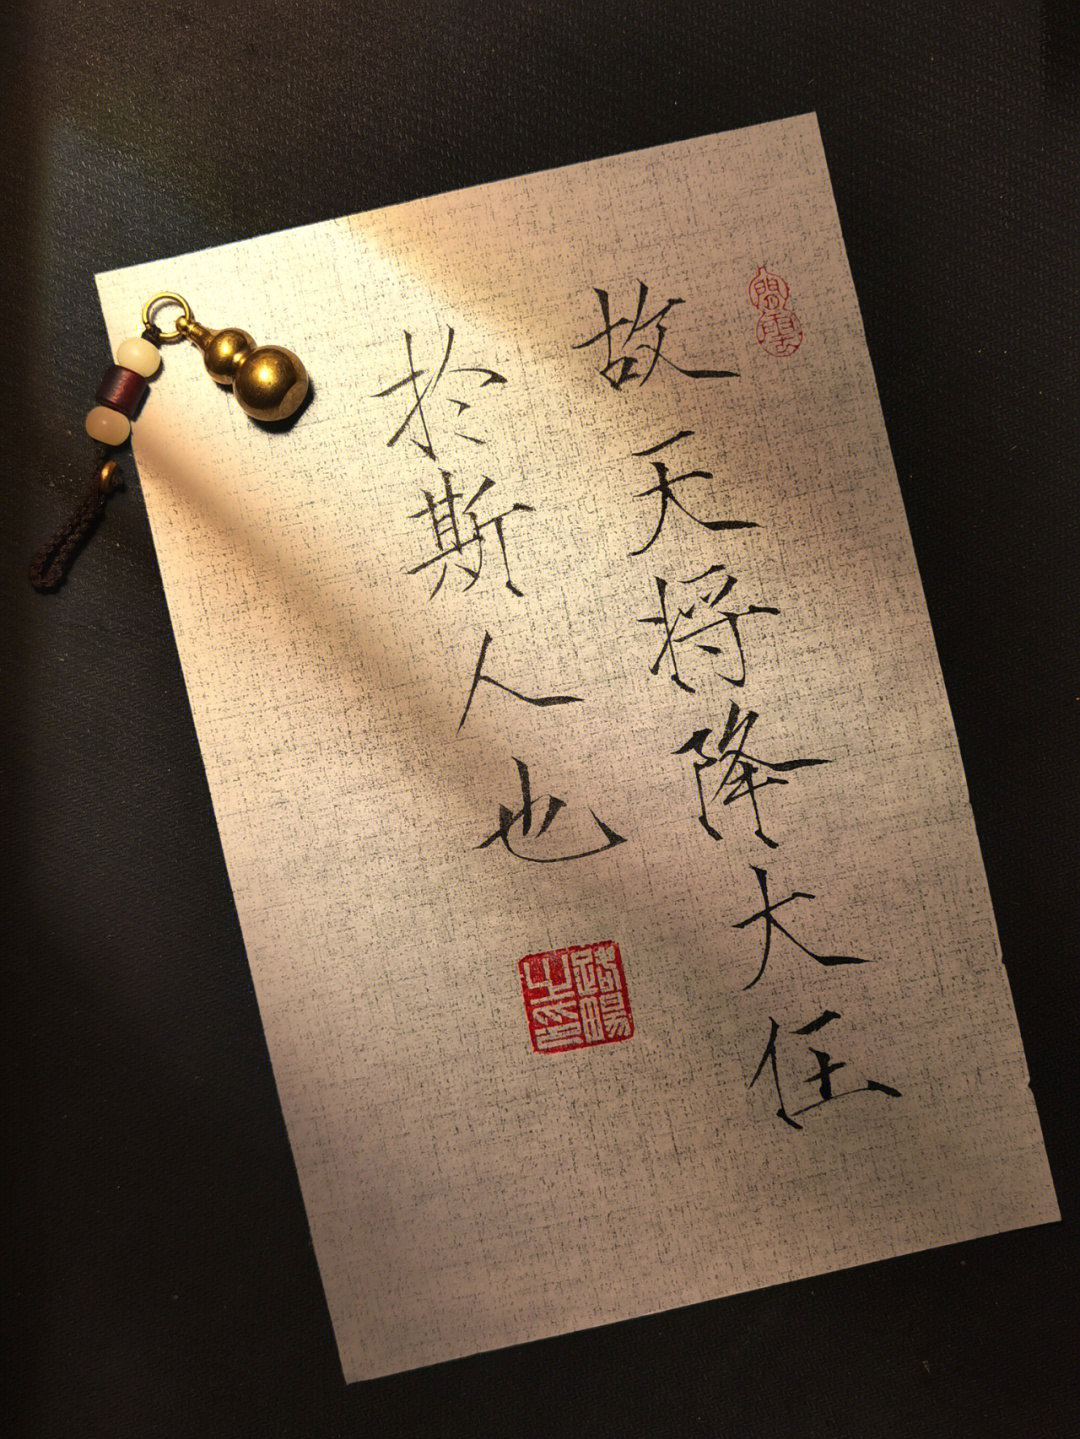 故天将降大任
於斯人也